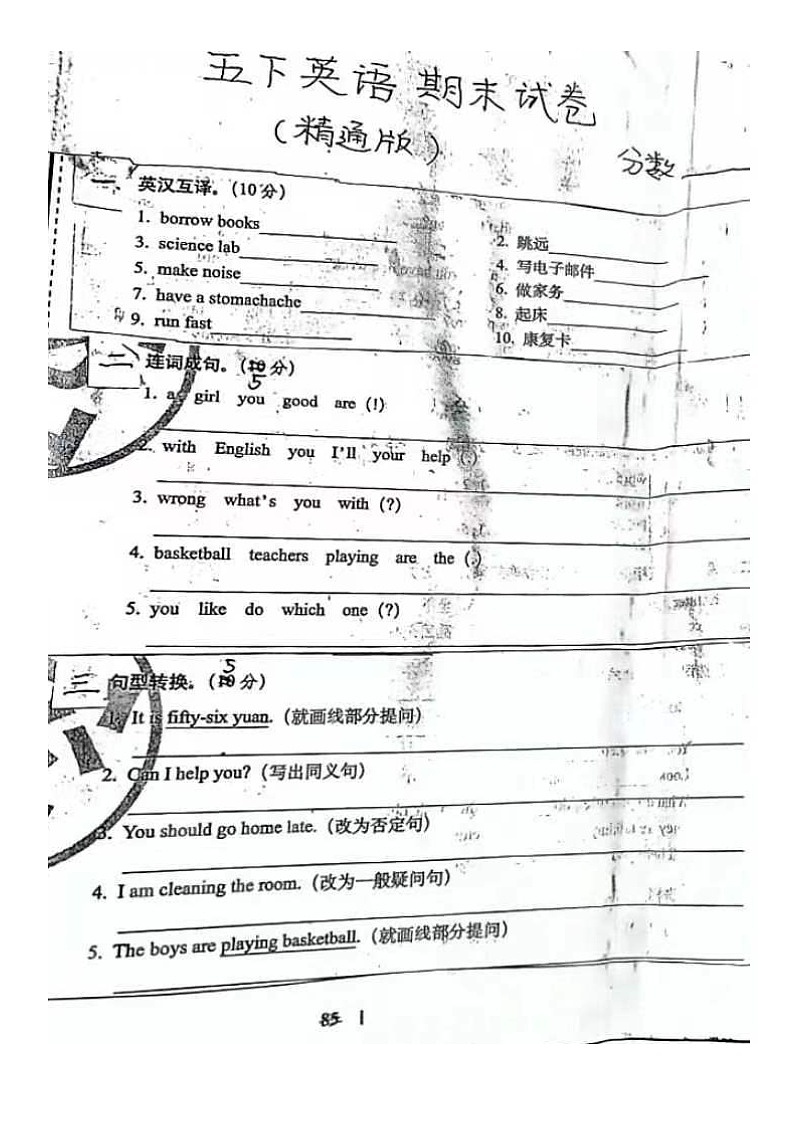 五下英语 期末试卷
(精通版)
分数
一、英汉互译。(10分)
1. borrow books
2. 跳远
3. science lab
4. 写电子邮件
5. make noise
6. 做家务
7. have a stomachache
8. 起床
9. run fast
10. 康复卡
二 连词成句。(5分)
1. a girl you good are (!)
2. with English you I'll your help (.)
3. wrong what's you with (?)
4. basketball teachers playing are the (.)
5. you like do which one (?)
三 句型转换。(5分)
1. It is fifty-six yuan. (就画线部分提问)
2. Can I help you? (写出同义句)
3. You should go home late. (改为否定句)
4. I am cleaning the room. (改为一般疑问句)
5. The boys are playing basketball. (就画线部分提问)
85 1